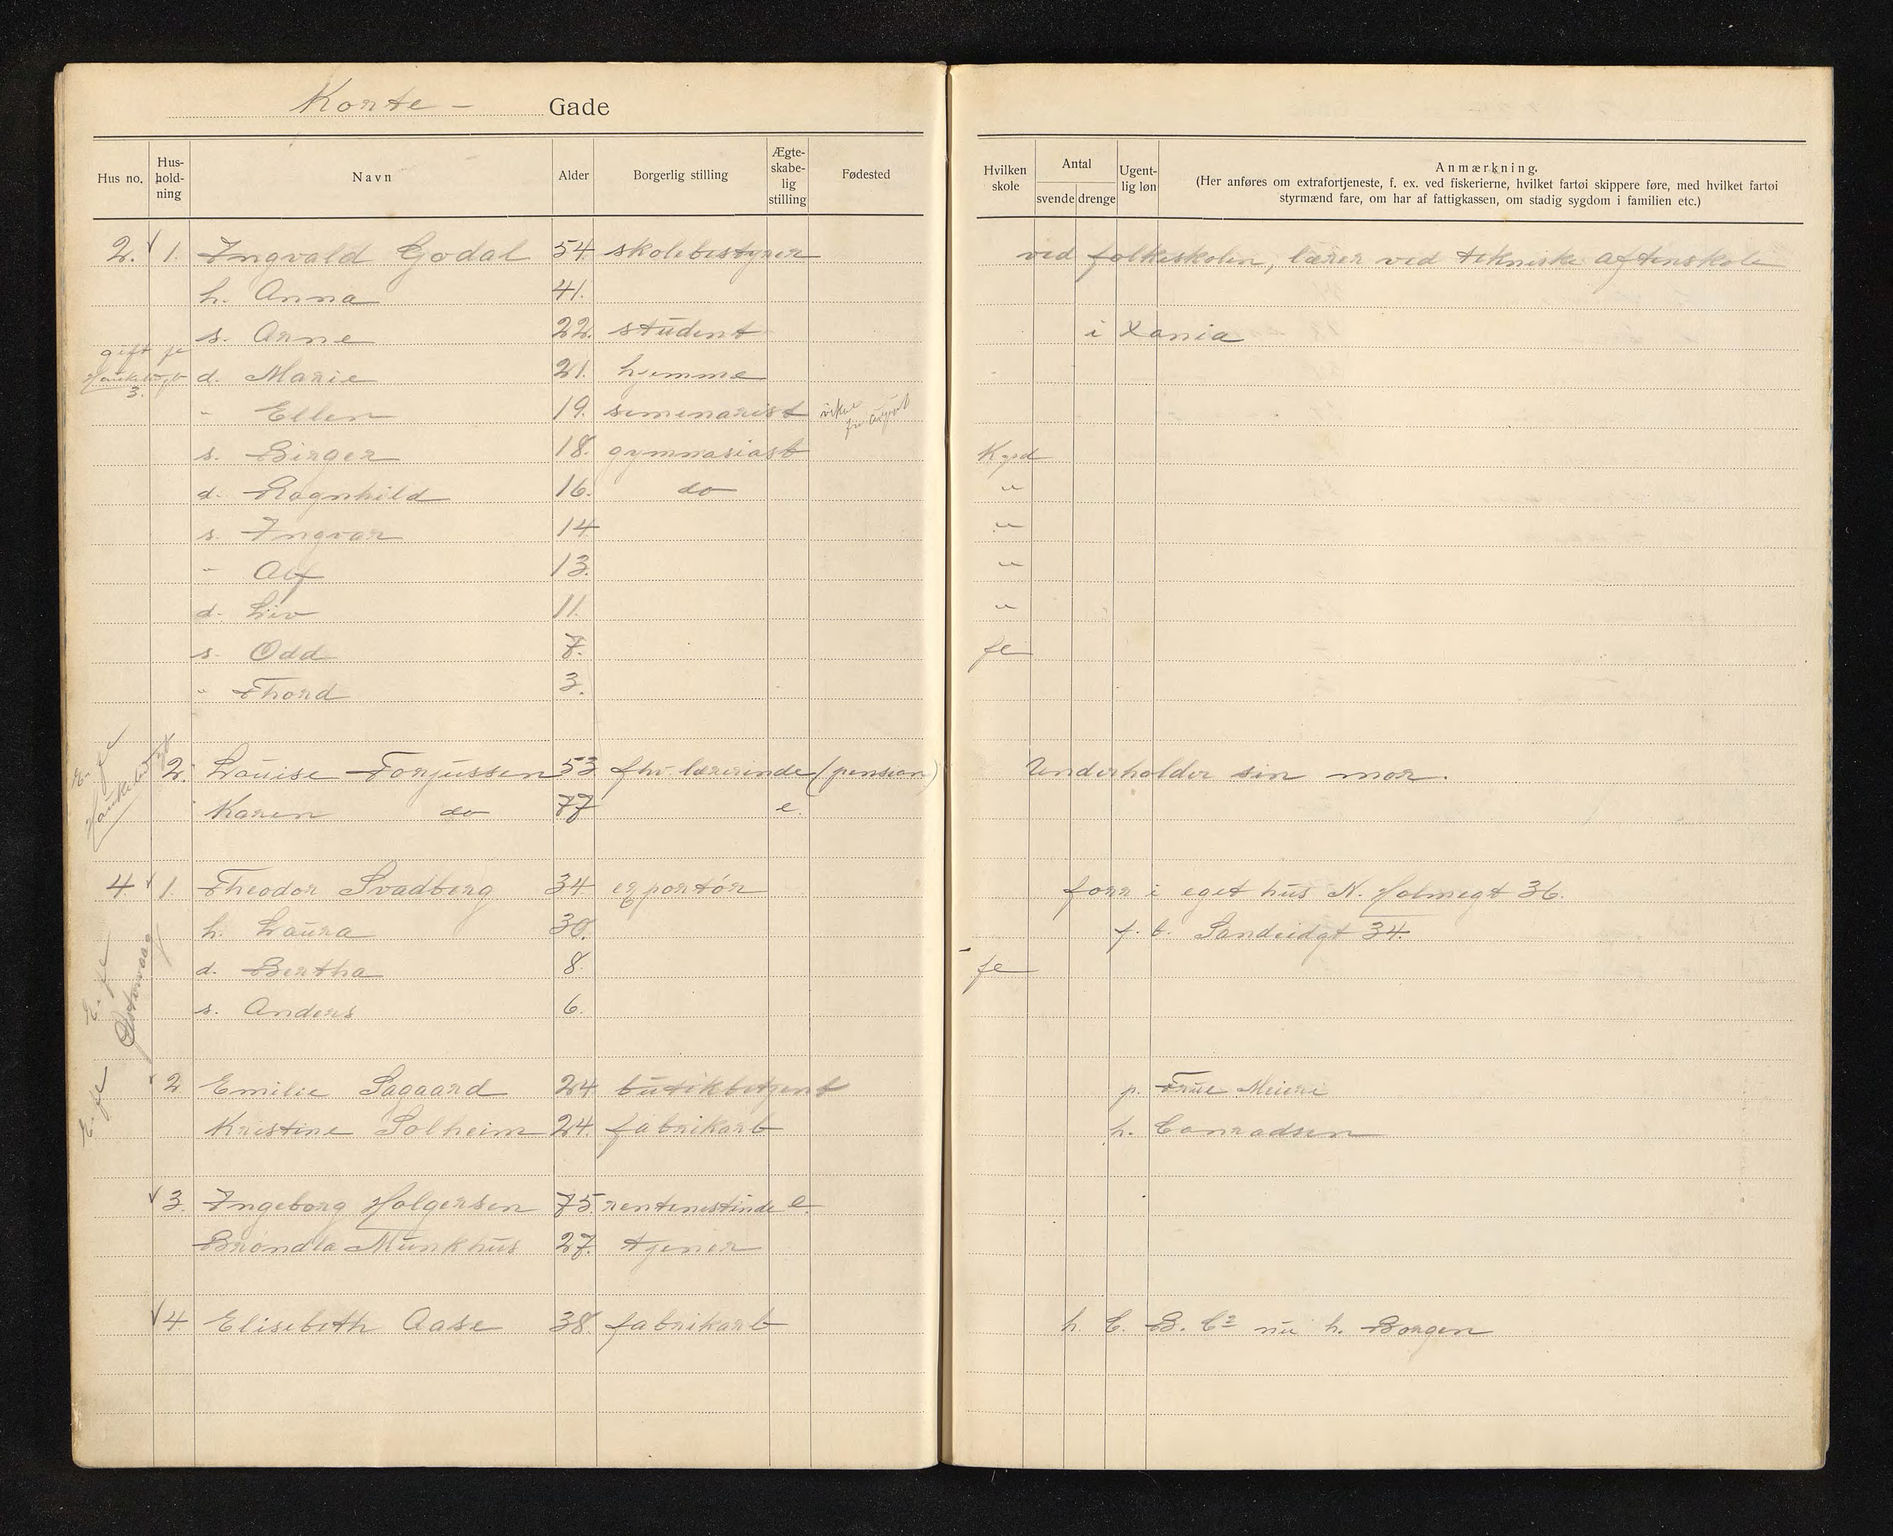 Korte - Gade
Hus no. Hus-hold-ning Navn Alder Borgerlig stilling Ægte-skabe-lig stilling Fødested Hvilken skole Antal svende drenge Ugent-lig løn Anmærkning.
(Her anføres om extrafortjeneste, f. ex. ved fiskerierne, hvilket fartøi skippere føre, med hvilket fartøi
styrmænd fare, om har af fattigkassen, om stadig sygdom i familien etc.)
2. √ 1. Ingvald Godal 54. skolebestyrer ved folkeskolen, lærer ved tekniske aftenskole
h. Anna 41.
s. Arne 22. student i Xania
gift fl
3.
d. Marie 21. hjemme
" Ellen 19. seminarist
s. Birger 18. gymnasiast
d. Ragnhild 16. do "
s. Ingvar 14 "
" Alf 13. "
d. Liv 11. "
s. Odd 7. fl
" Thord 3.
2. Louise Torjussen 53 fhv lærerinde (pension) Underholder sin mor.
Karen do 77 e.
4 √ 1. Theodor Svadberg 34 exportør forr i eget hus N. Holmegt 36.
h. Laura 30. f. b. Sandvidgt 34.
d. Bertha 8. fl
s. Anders 6.
√ 2 Emilie Sagaard 24. butikbetjent p. Frue Meieri
Kristine Solheim 24. fabrikarb h. Conradsen
√ 3. Ingeborg Holgersen 75. rentenistinde e.
Brondla Munkhus 27. tjener
√ 4 Elisebeth Aase 38. fabrikarb h. C. B. Co nu h. Borgen